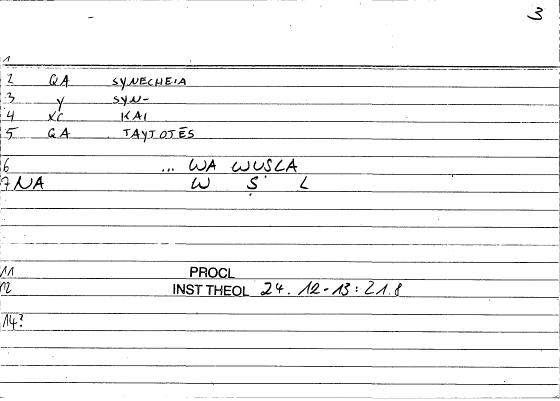 3
1
2 QA SYNECHEIA
3 y SYN-
4 xc KAI
5 QA TAYTOTĒS
6 ... WA WUṢLA
7 NA W Ṣ L
11 PROCL
12 INST THEOL 24. 12-13 : 21.8
14?